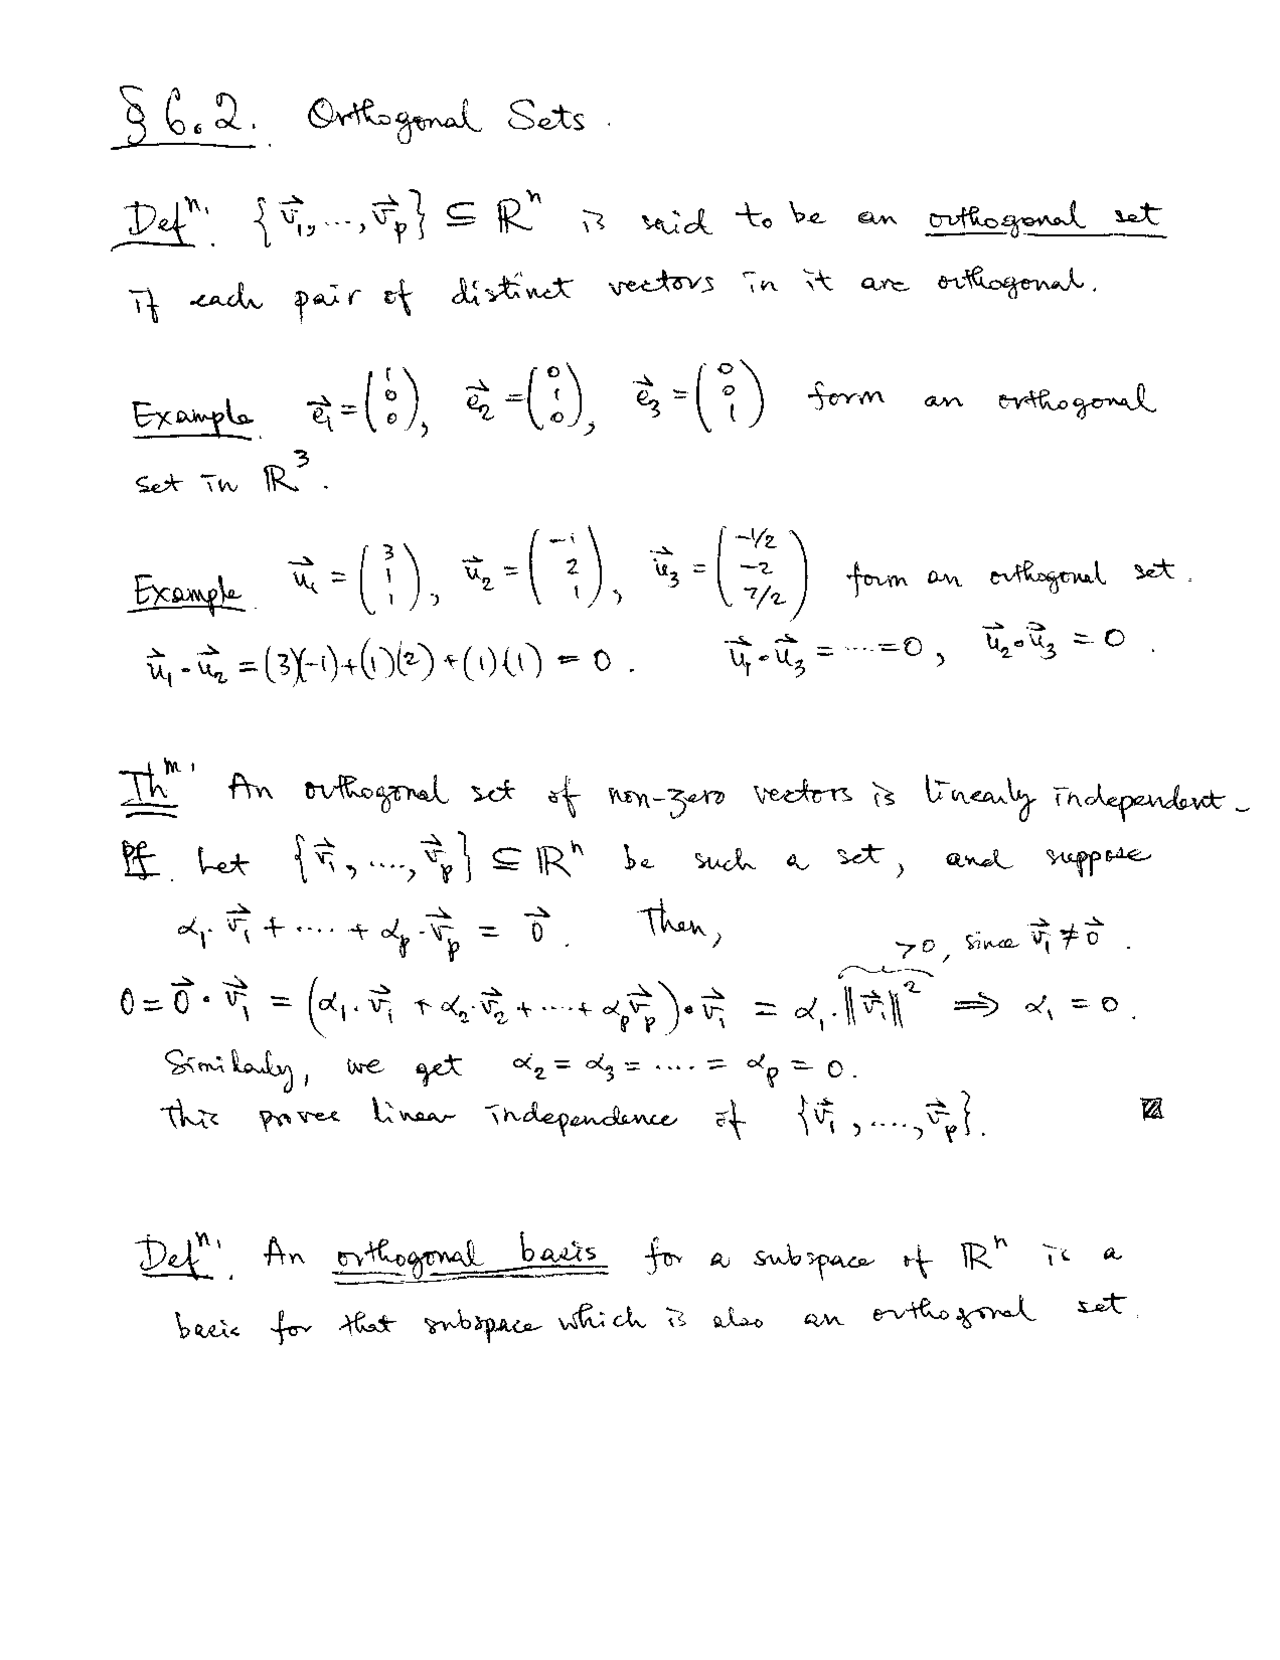 § 6.2. Orthogonal Sets.
Defⁿ. {v⃗₁, ..., v⃗ₚ} ⊆ ℝⁿ is said to be an orthogonal set
if each pair of distinct vectors in it are orthogonal.
Example. e⃗₁ = (1 0 0), e⃗₂ = (0 1 0), e⃗₃ = (0 0 1) form an orthogonal
set in ℝ³.
Example. u⃗₁ = (3 1 1), u⃗₂ = (-1 2 1), u⃗₃ = (-1/2 -2 7/2) form an orthogonal set.
u⃗₁ • u⃗₂ = (3)(-1)+(1)(2)+(1)(1) = 0. u⃗₁ • u⃗₃ = ....=0, u⃗₂ • u⃗₃ = 0.
Thᵐ. An orthogonal set of non-zero vectors is linearly independent.
Pf. Let {v⃗₁, ...., v⃗ₚ} ⊆ ℝⁿ be such a set, and suppose
α₁·v⃗₁ + .... + αₚ·v⃗ₚ = 0⃗. Then,
>0, since v⃗₁ ≠ 0⃗.
0 = 0⃗ • v⃗₁ = (α₁·v⃗₁ + α₂·v⃗₂ + .... + αₚv⃗ₚ) • v⃗₁ = α₁·‖v⃗₁‖² ⟹ α₁ = 0.
Similarly, we get α₂ = α₃ = .... = αₚ = 0.
This proves linear independence of {v⃗₁, ...., v⃗ₚ}.
Defⁿ. An orthogonal basis for a subspace of ℝⁿ is a
basis for that subspace which is also an orthogonal set.